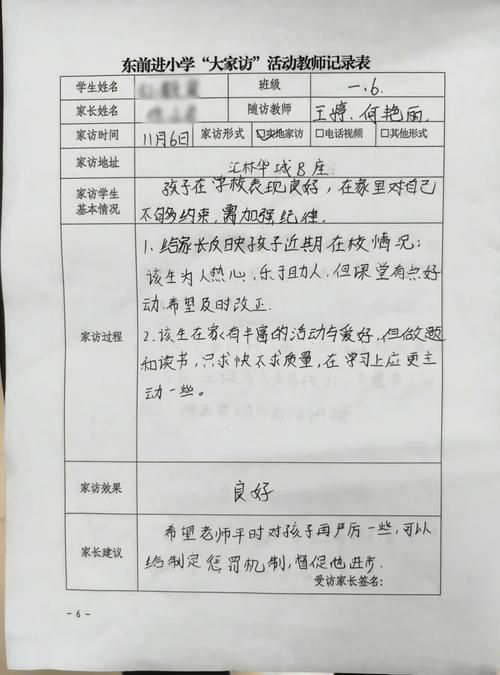 东前进小学“大家访”活动教师记录表
学生姓名 班级 一.6
家长姓名 随访教师 王婷.何艳丽
家访时间 11月6日 家访形式 ☑实地家访 □电话视频 □其他形式
家访地址 汇林华城B座
家访学生基本情况
孩子在学校表现良好，在家里对自己
不够约束，需加强纪律.
家访过程
1.给家长反映孩子近期在校情况：
该生为人热心，乐于助人，但课堂有点好
动.希望及时改正.
2.该生在家有丰富的活动与爱好，但做题
和读书，只求快不求质量，在学习上应更主
动一些。
家访效果 良好
家长建议
希望老师平时对孩子再严厉一些，可以
给制定惩罚机制，督促他进步.
受访家长签名：
- 6 -